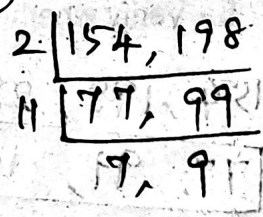 2 | 154, 198
11 | 77, 99
7, 9